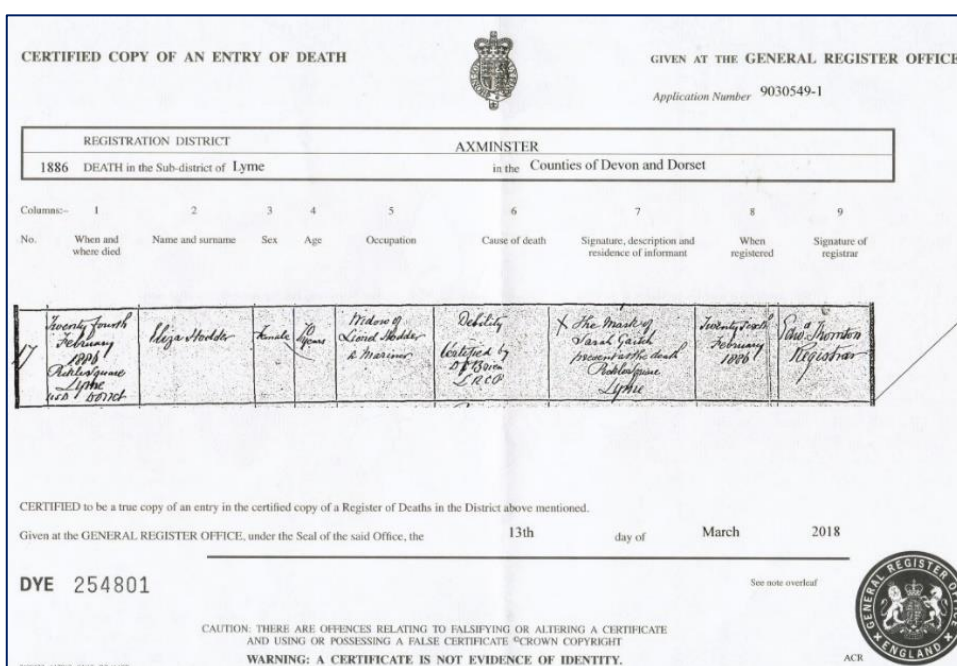 CERTIFIED COPY OF AN ENTRY OF DEATH
GIVEN AT THE GENERAL REGISTER OFFICE
Application Number 9030549-1
REGISTRATION DISTRICT AXMINSTER
1886 DEATH in the Sub-district of Lyme in the Counties of Devon and Dorset
Columns:- 1 2 3 4 5 6 7 8 9
No. When and where died Name and surname Sex Age Occupation Cause of death Signature, description and residence of informant When registered Signature of registrar
17
Twenty fourth
February
1886
Square
Lyme
Eliza Hodder
Female
years
Widow of
Hodder
a Mariner
Debility
Certified by
LRCP
X The Mark of
Sarah
present at the death
Square
Lyme
Twenty Sixth
February
1886
Thornton
Registrar
CERTIFIED to be a true copy of an entry in the certified copy of a Register of Deaths in the District above mentioned.
Given at the GENERAL REGISTER OFFICE, under the Seal of the said Office, the 13th day of March 2018
DYE 254801
See note overleaf
CAUTION: THERE ARE OFFENCES RELATING TO FALSIFYING OR ALTERING A CERTIFICATE
AND USING OR POSSESSING A FALSE CERTIFICATE ©CROWN COPYRIGHT
WARNING: A CERTIFICATE IS NOT EVIDENCE OF IDENTITY.
GENERAL REGISTER OFFICE
ENGLAND
ACR